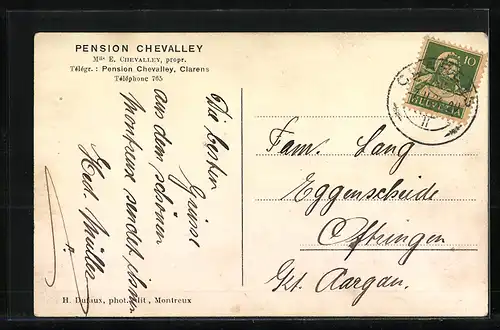 PENSION CHEVALLEY
Mlle E. CHEVALLEY, propr.
Télégr.: Pension Chevalley, Clarens
Téléphone 765
Die besten
Grüsse
aus dem schönen
Montreux sendet ihnen
Hed. Müller
H. Dufaux, phot. édit, Montreux
10
HELVETIA
Fam. Lang
Eggenscheide
Oftringen
Kt. Aargau.